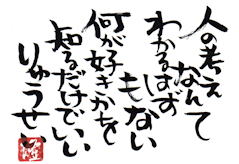 人の考えなんて
わかるはず
もない
何が好きかを
知るだけでいい
りゅうせい